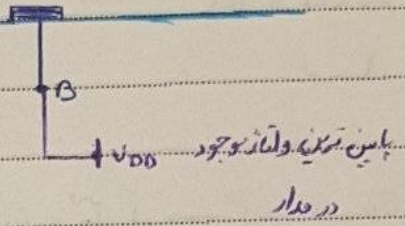 B
VDD پایین ترین ولتاژ موجود
در مدار